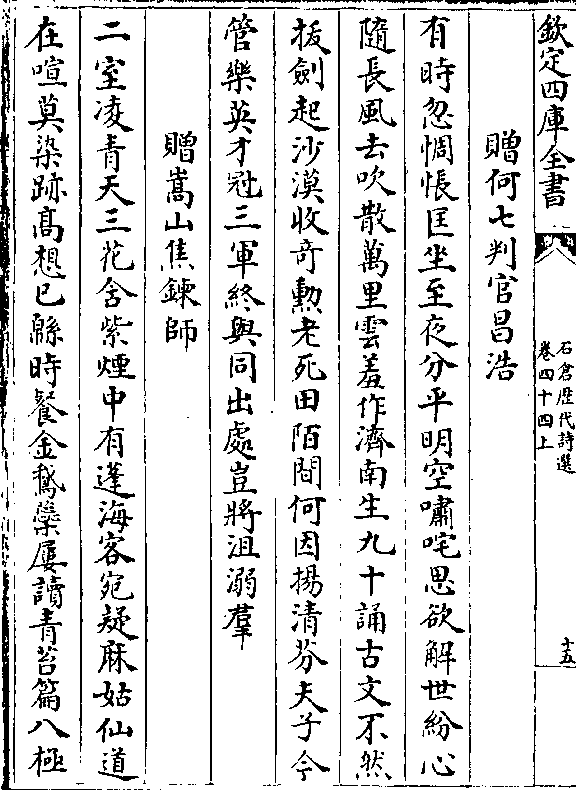 欽定四庫全書
石倉歴代詩選
卷四十四上
十五
贈何七判官昌浩
有時忽惆悵匡坐至夜分平明空嘯咤思欲解世紛心
隨長風去吹散萬里雲羞作濟南生九十誦古文不然
拔劍起沙漠收竒勲老死田陌間何因揚清芬夫子今
管樂英才冠三軍終與同出處豈將沮溺羣
贈嵩山焦鍊師
二室凌青天三花含紫煙中有蓬海客宛疑麻姑仙道
在喧莫染跡髙想已緜時餐金鵝蘂屢讀青苔篇八極